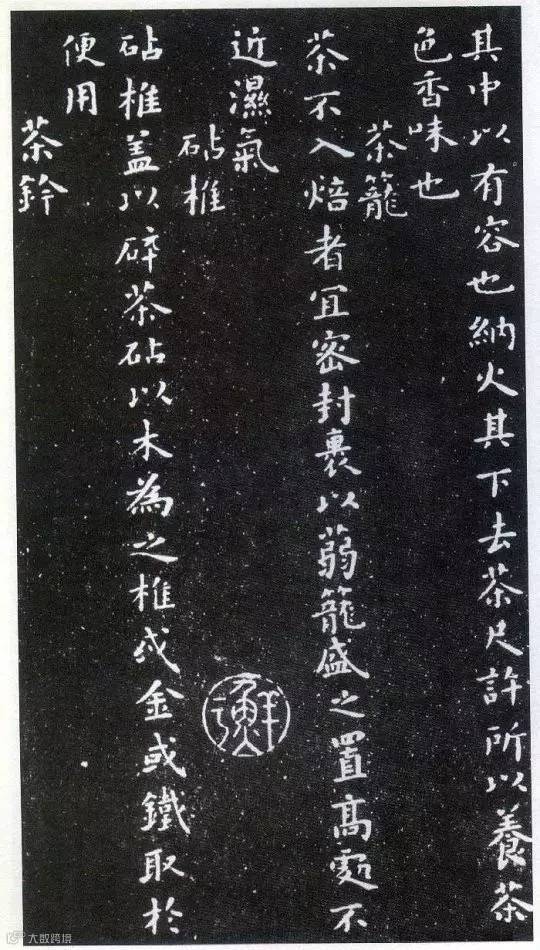 其中以有容也納火其下去茶尺許所以養茶
色香味也
茶籠
茶不入焙者宜密封裹以蒻籠盛之置高處不
近濕氣
砧椎
砧椎盖以碎茶砧以木為之椎或金或鐵取於
便用
茶鈐
大數跨境